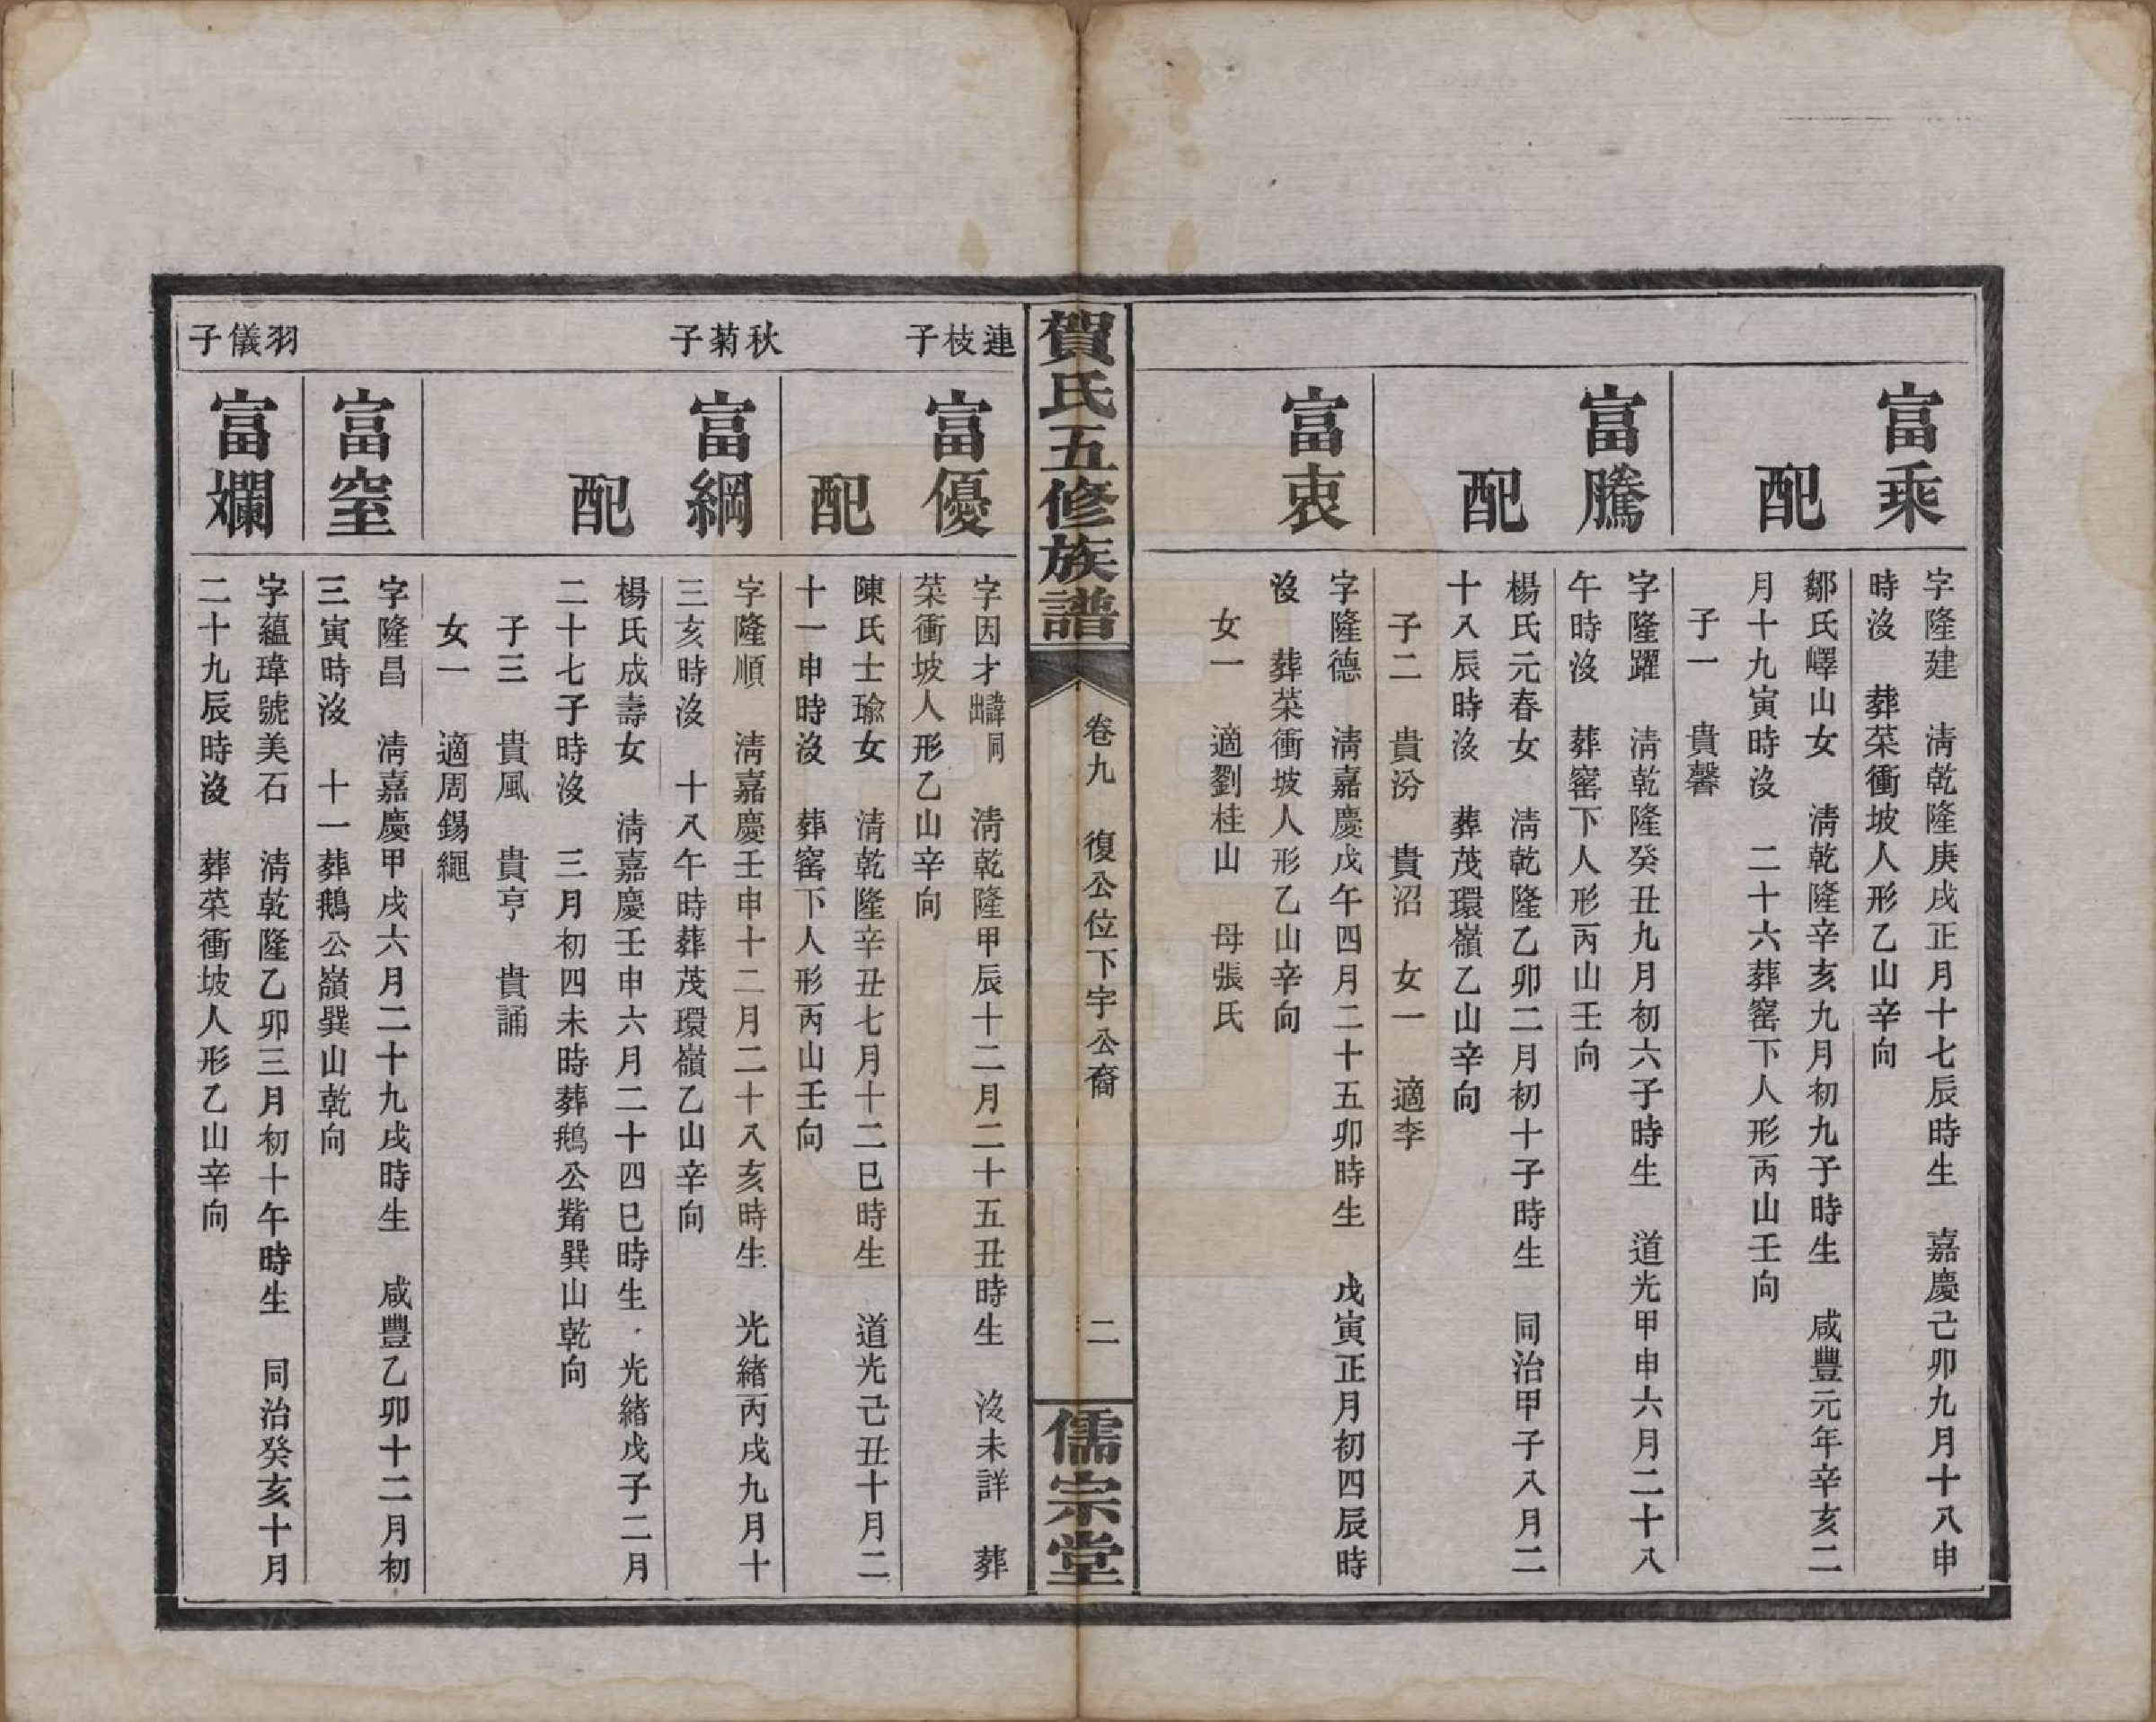 富乘
字隆建　清乾隆庚戌正月十七辰時生　嘉慶己卯九月十八申
時沒　葬菜衝坡人形乙山辛向
配
鄒氏嶧山女　清乾隆辛亥九月初九子時生　咸豐元年辛亥二
月十九寅時沒　二十六葬窰下人形丙山壬向
子一　貴馨
富騰
字隆躍　清乾隆癸丑九月初六子時生　道光甲申六月二十八
午時沒　葬窰下人形丙山壬向
配
楊氏元春女　清乾隆乙卯二月初十子時生　同治甲子八月二
十八辰時沒　葬茂環嶺乙山辛向
子二　貴汾　貴沼　女一　適李
富衷
字隆德　清嘉慶戊午四月二十五卯時生　戊寅正月初四辰時
沒　葬菜衝坡人形乙山辛向
女一　適劉桂山　母張氏
賀氏五修族譜
卷九　復公位下宇公裔
二
儒宗堂
連枝子
富優
字因才諱同出　清乾隆甲辰十二月二十五丑時生　沒未詳　葬
菜衝坡人形乙山辛向
配
陳氏士瑜女　清乾隆辛丑七月十二巳時生　道光己丑十月二
十一申時沒　葬窰下人形丙山壬向
秋菊子
富綱
字隆順　清嘉慶壬申十二月二十八亥時生　光緒丙戌九月十
三亥時沒　十八午時葬茂環嶺乙山辛向
配
楊氏成壽女　清嘉慶壬申六月二十四巳時生　光緒戊子二月
二十七子時沒　三月初四未時葬鵝公觜巽山乾向
子三　貴風　貴亨　貴誦
女一　適周錫繩
富窐
字隆昌　清嘉慶甲戌六月二十九戌時生　咸豐乙卯十二月初
三寅時沒　十一葬鵝公嶺巽山乾向
羽儀子
富斕
字蘊瑋號美石　清乾隆乙卯三月初十午時生　同治癸亥十月
二十九辰時沒　葬菜衝坡人形乙山辛向